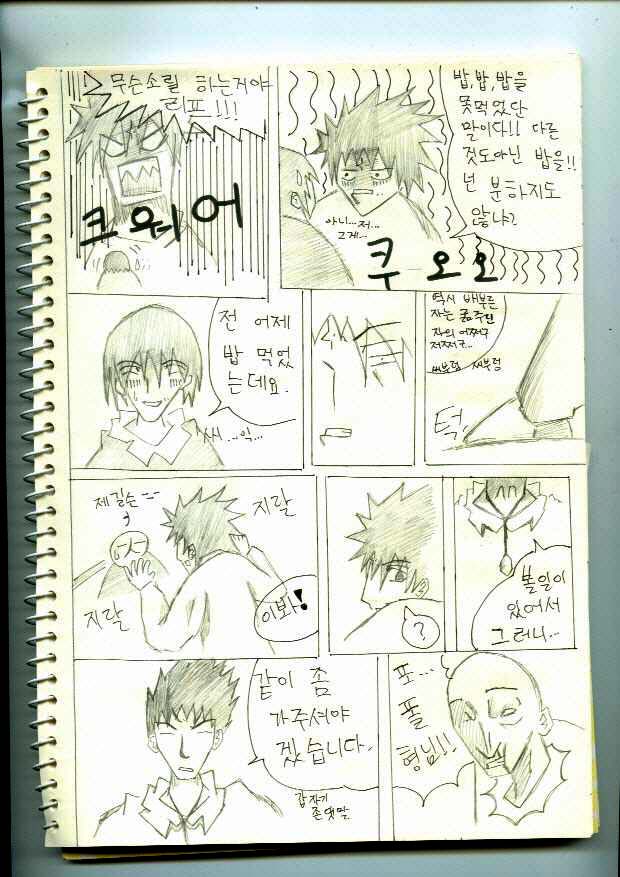 무슨소릴 하는거야
리프!!!
크워어
밥,밥,밥을
못먹었단
말이다!! 다른
것도아닌 밥을!!
넌 분하지도
않냐?
아니...저...
그게...
쿠오오
전 어제
밥 먹었
는데요.
씨...익...
역시 배부른
자는 굶주린
자의 어쩌구
저쩌구...
씨부렁 씨부렁
턱
제길슨
지랄
지랄
이봐!
?
볼일이
있어서
그러니...
같이 좀
가주셔야
겠습니다.
갑자기
존댓말
포...
폴
형님!!